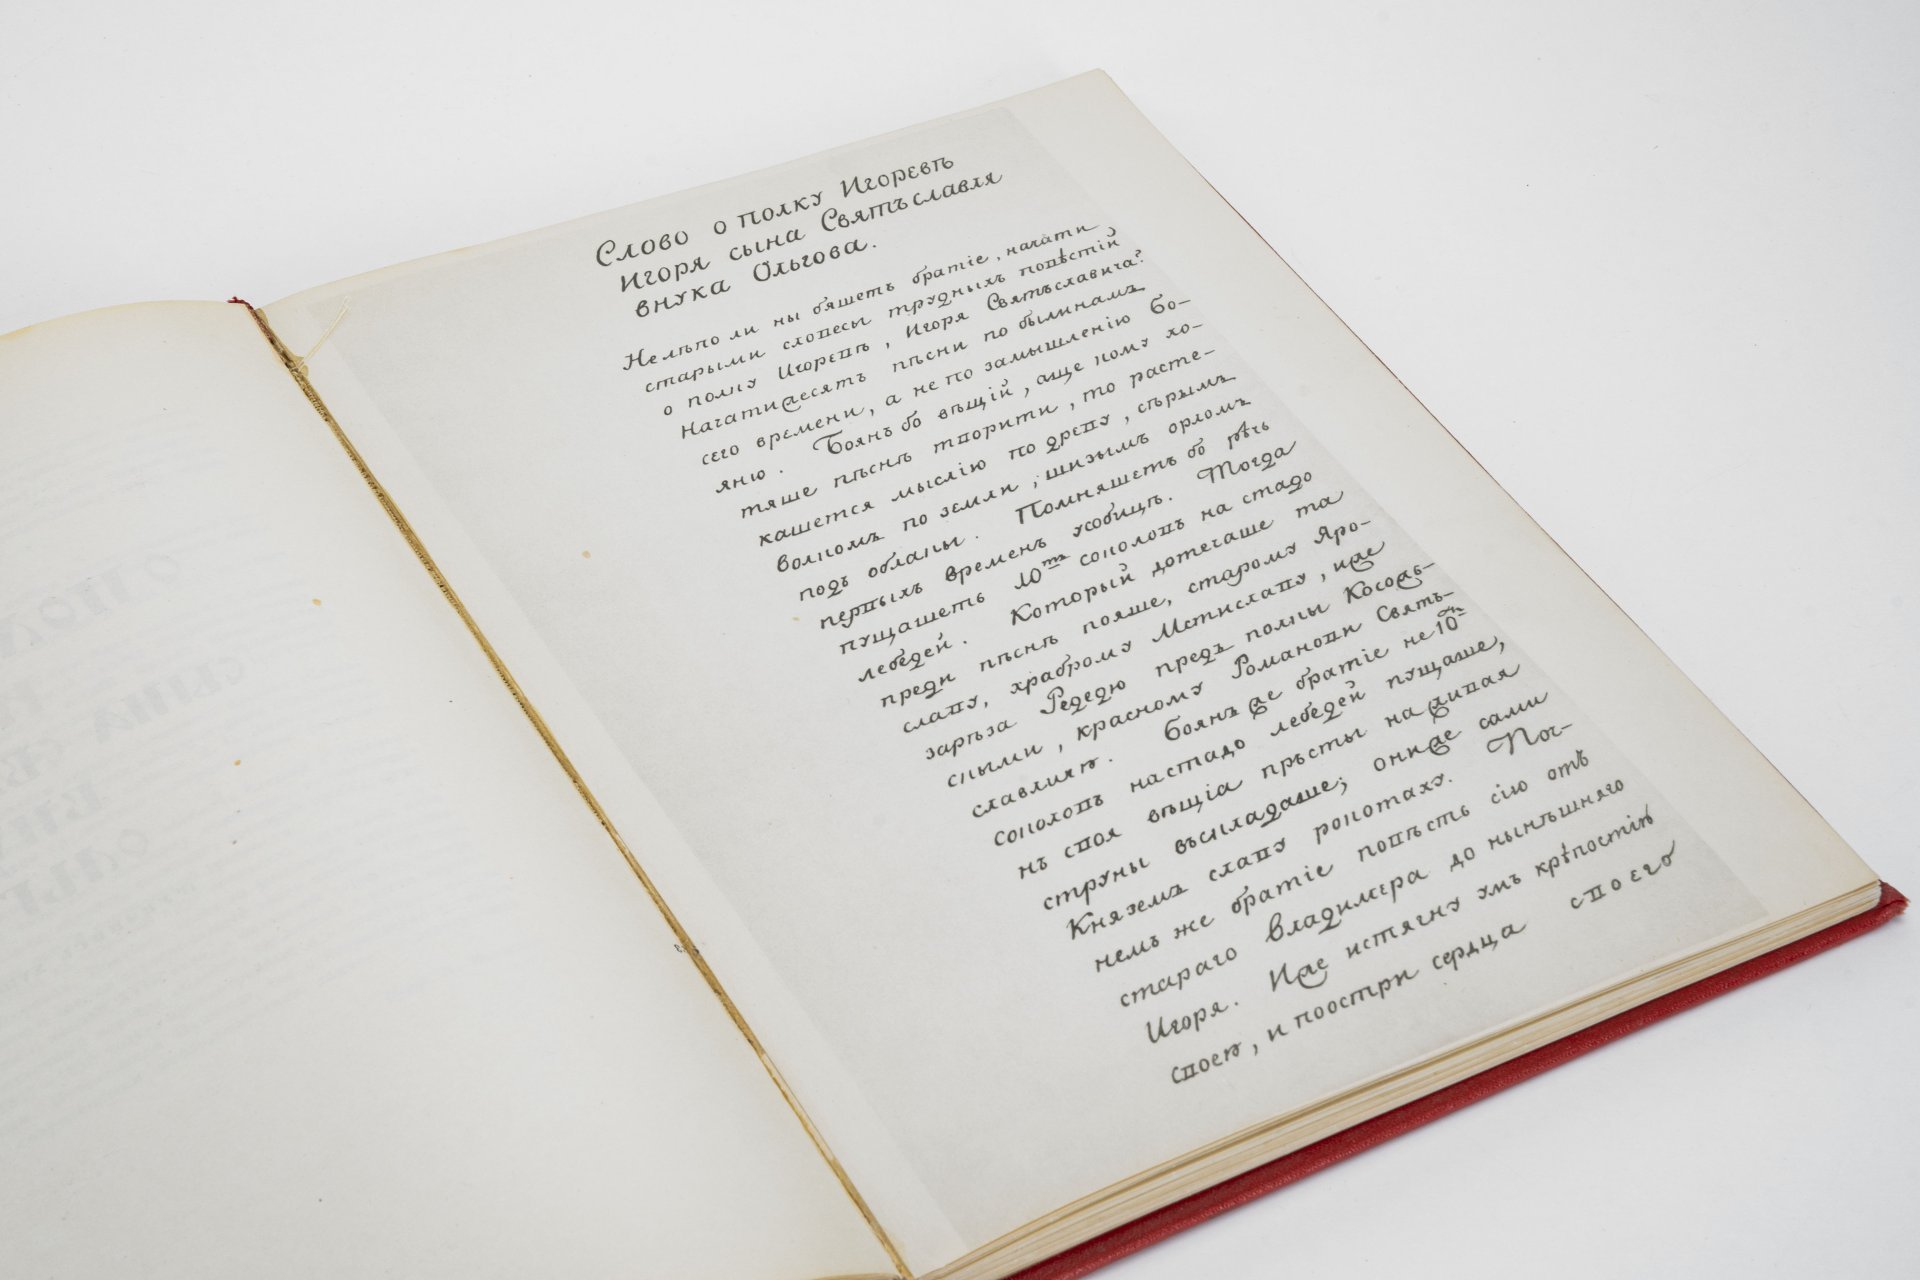 Слово о полку Игоревѣ
Игоря сына Святъславля
внука Ольгова.
Нелѣпо ли ны бяшетъ братіе, начати
старыми словесы трудныхъ повѣстій
о полку Игоревѣ, Игоря Святъславича?
Начатижесятъ пѣсни по былинамъ
сего времени, а не по замышленію Бо-
яню. Боянъ бо вѣщій, аще кому хо-
тяше пѣснь творити, то расте-
кашется мыслію по древу, сѣрымъ
волкомъ по земли, шизымъ орломъ
подъ облакы. Помняшеть бо рѣчь
первыхъ временъ усобицѣ. Тогда
пущашеть 10ть соколовъ на стадо
лебедей. Который дотечаше та
преди пѣснь пояше, старому Яро-
славу, храброму Мстиславу, иже
зарѣза Редедю предъ полкы Косожь-
скыми, красному Романови Святъ-
славличю. Боянъ же братіе не 10ть
соколовъ настадо лебедей пущаше,
нъ своя вѣщіа пръсты на живая
струны въскладаше; ониже сами
Княземъ славу рокотаху. Поч-
немъ же братіе повѣсть сію отъ
стараго Владимера до нынѣшняго
Игоря. Иже истягну умъ крѣпостію
своею, и поостри сердца своего